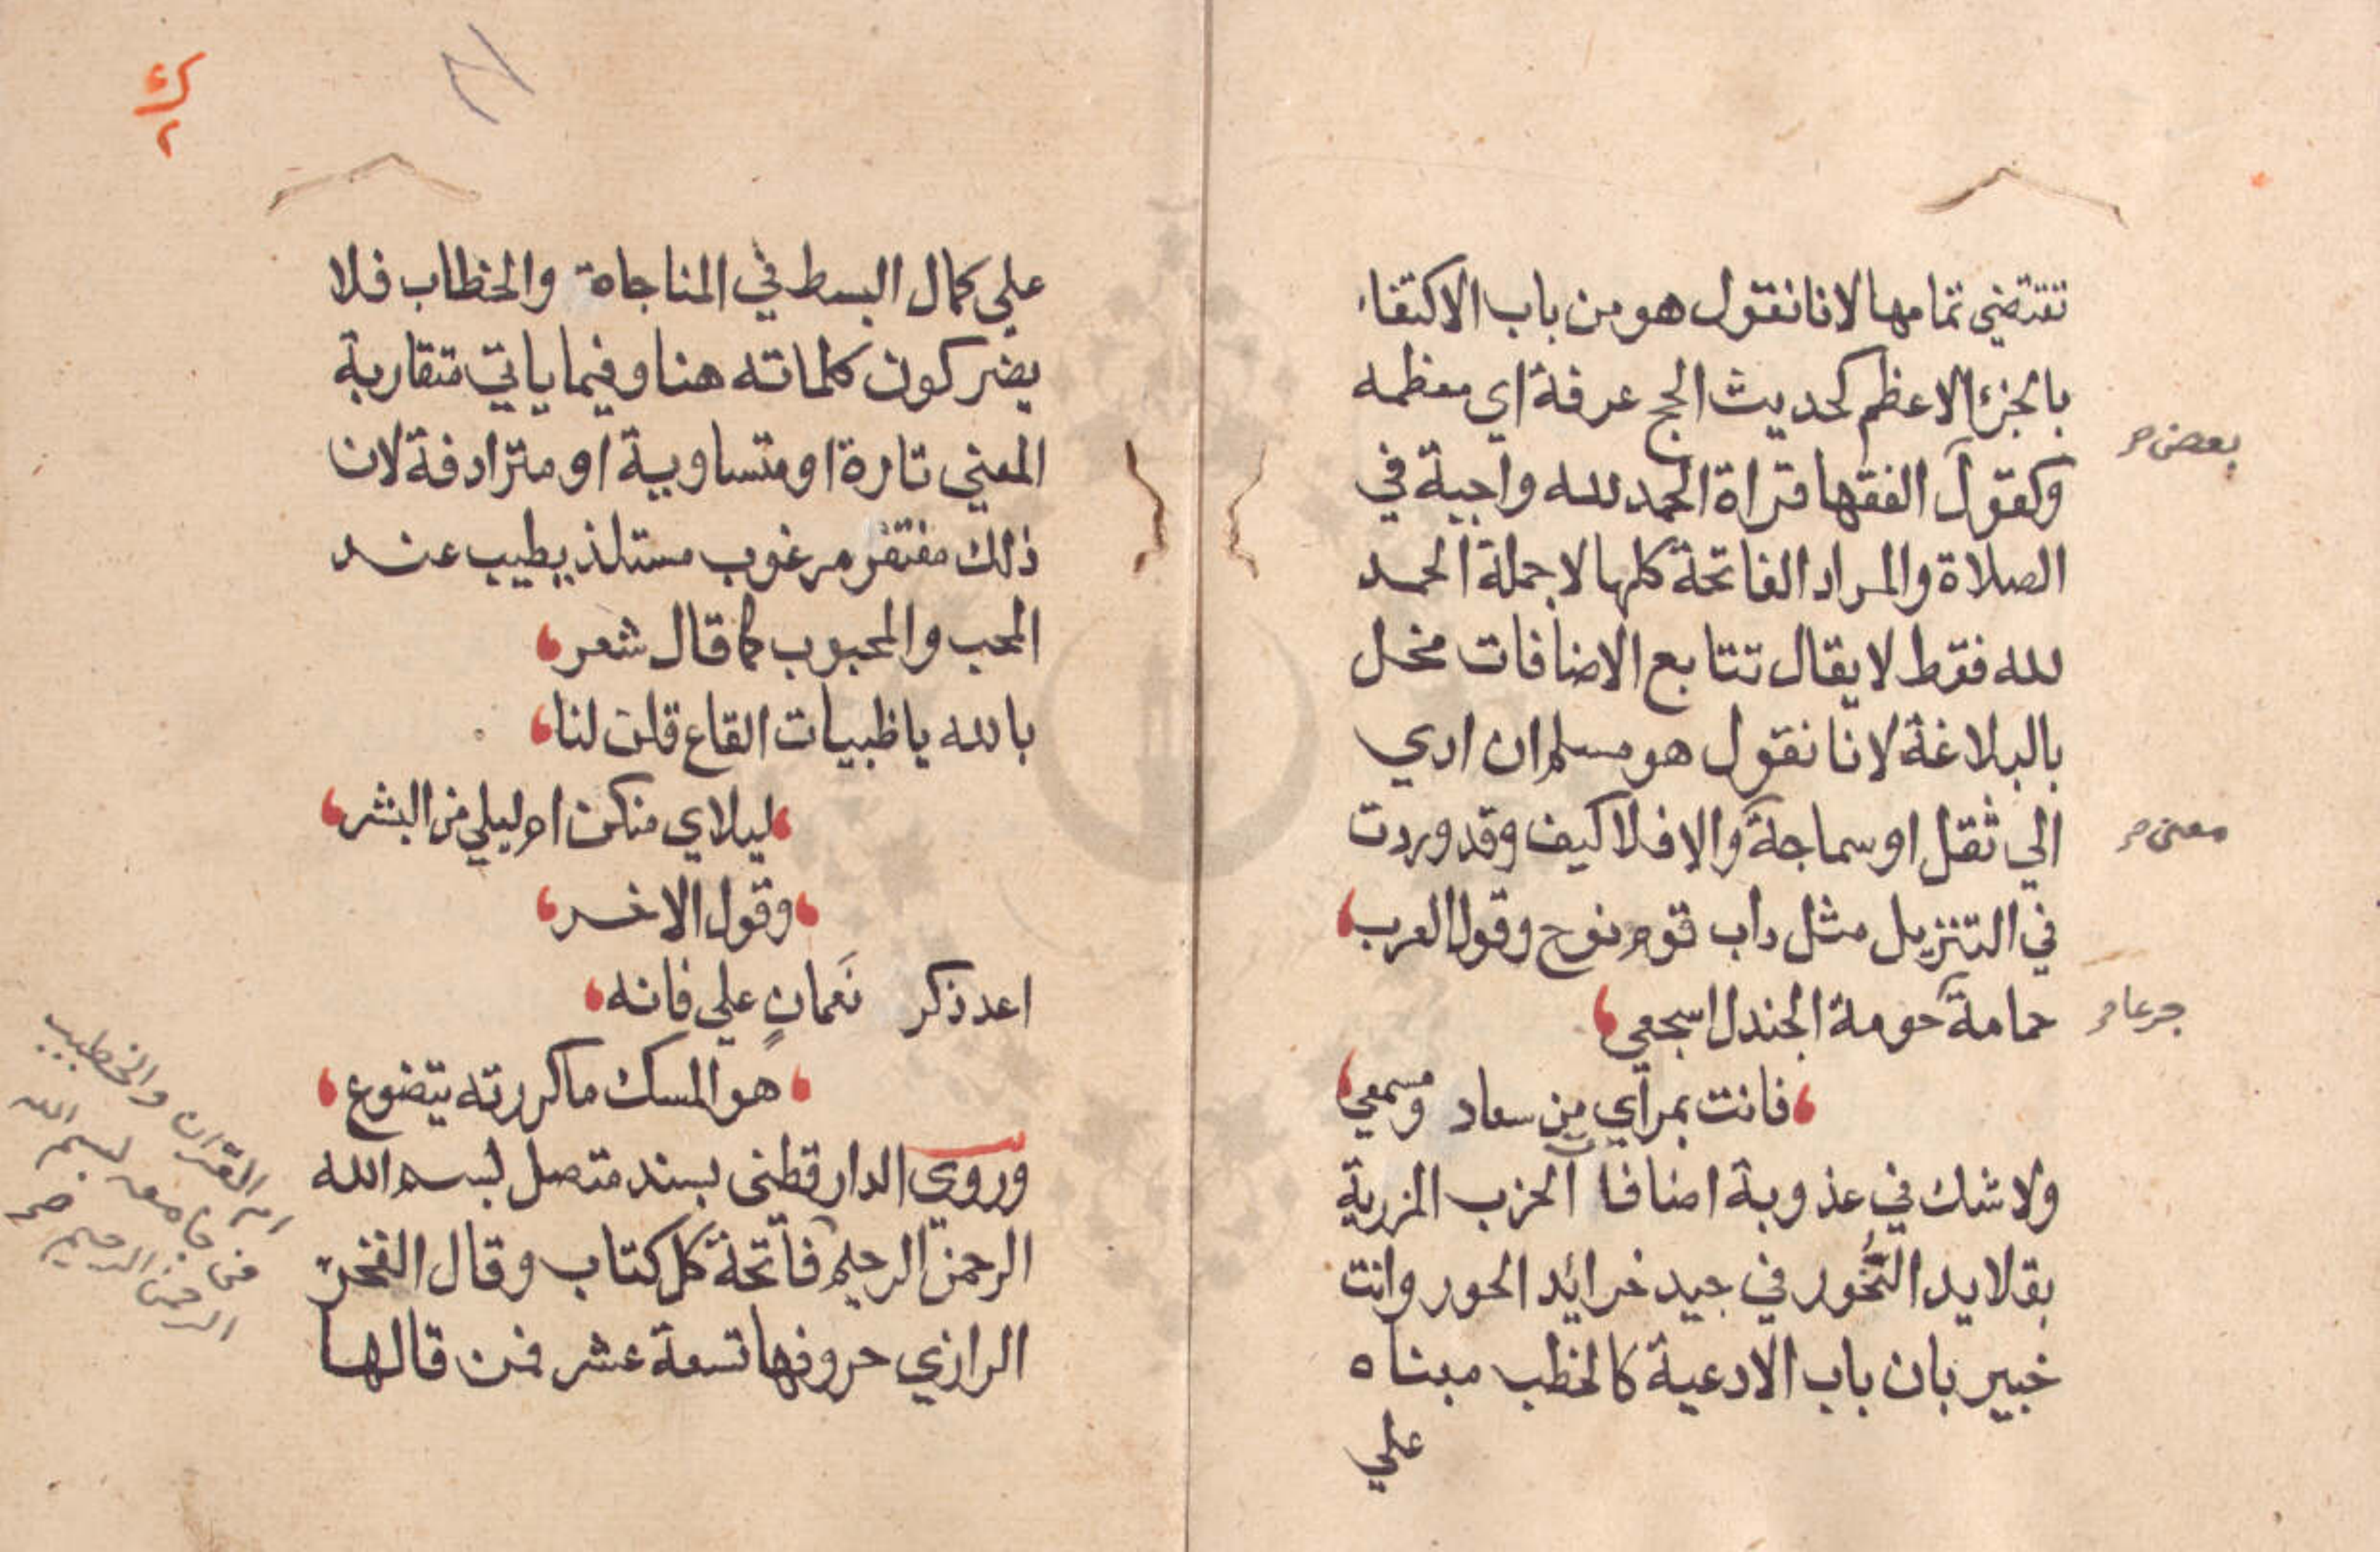 تقتضي تمامها لانا نقول هو من باب الاكتفاء
بالجزء الاعظم كحديث الحج عرفة اي معظمه
بعض صح
وكقول الفقها قراة الحمد لله واجبة في
الصلاة والمراد الفاتحة كلها لا جملة الحمد
لله فقط لا يقال تتابع الاضافات مخل
بالبلاغة لانا نقول هو مسلم ان ادي
الي ثقل او سماجة والا فلا كيف وقد وردت
معنى صح
في التنزيل مثل داب قوم نوح وقول العرب
حمامة حومة الجندل اسجعي
جرعا صح
فانت بمرآي من سعاد ومسمعي
ولا شك في عذوبة اضافات الحزب المزرية
بقلايد النحور في جيد خرائد الحور وانت
خبير بان باب الادعية كالخطب مبناه
علي
علي كمال البسط في المناجاة والخطاب فلا
يضر كون كلماته هنا وفيما ياتي متقاربة
المعني تارة او متساوية او مترادفة لان
ذلك مغتفر مرغوب مستلذ يطيب عند
المحب والمحبوب كما قال شعر
بالله يا ظبيات القاع قلن لنا
ليلاي منكن ام ليلي من البشر
وقول الاخر
اعد ذكر نَعمانٍ علي فانه
هو المسك ما كررته يتضوع
وروى الدارقطنى بسند متصل بسم الله
الرحمن الرحيم فاتحة كل كتاب وقال الفخر
الرازي حروفها تسعة عشر فمن قالها
ام القران والخطيب
فى جامعه بسم الله
الرحمن الرحيم صح